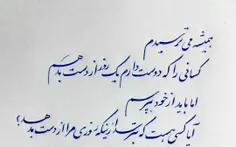 همیشه می ترسیدم
کسانی را که دوست دارم یک روز از دست بدهم
اما باید از خود بپرسم
آیا کسی هست که بترسد از اینکه روزی مرا از دست بدهد؟